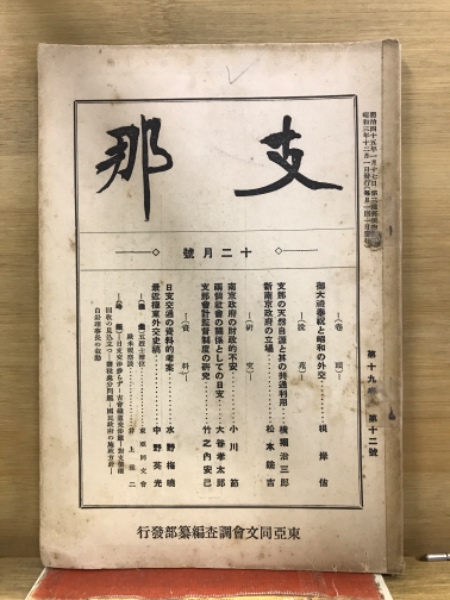 支那
十二月號
明治四十五年一月十七日第三種郵便物認可
昭和三年十二月一日發行
第十九卷 第十二號
―(卷頭)―
御大禮奉祝と昭和の外交
―(說苑)―
支那の天然資源と其の共通利用
新南京政府の立場
松本鎗吉
―(研究)―
南京政府の財政的不安
小川節
兩個社會の關係としての日支
大谷孝太郎
支那會計監督制度の研究
竹之內安巳
―(資料)―
日支交通の資料的考察
水野梅曉
最近極東外交史稿
中野英光
東亞同文會
井上雅二
東亞同文會調査編纂部發行